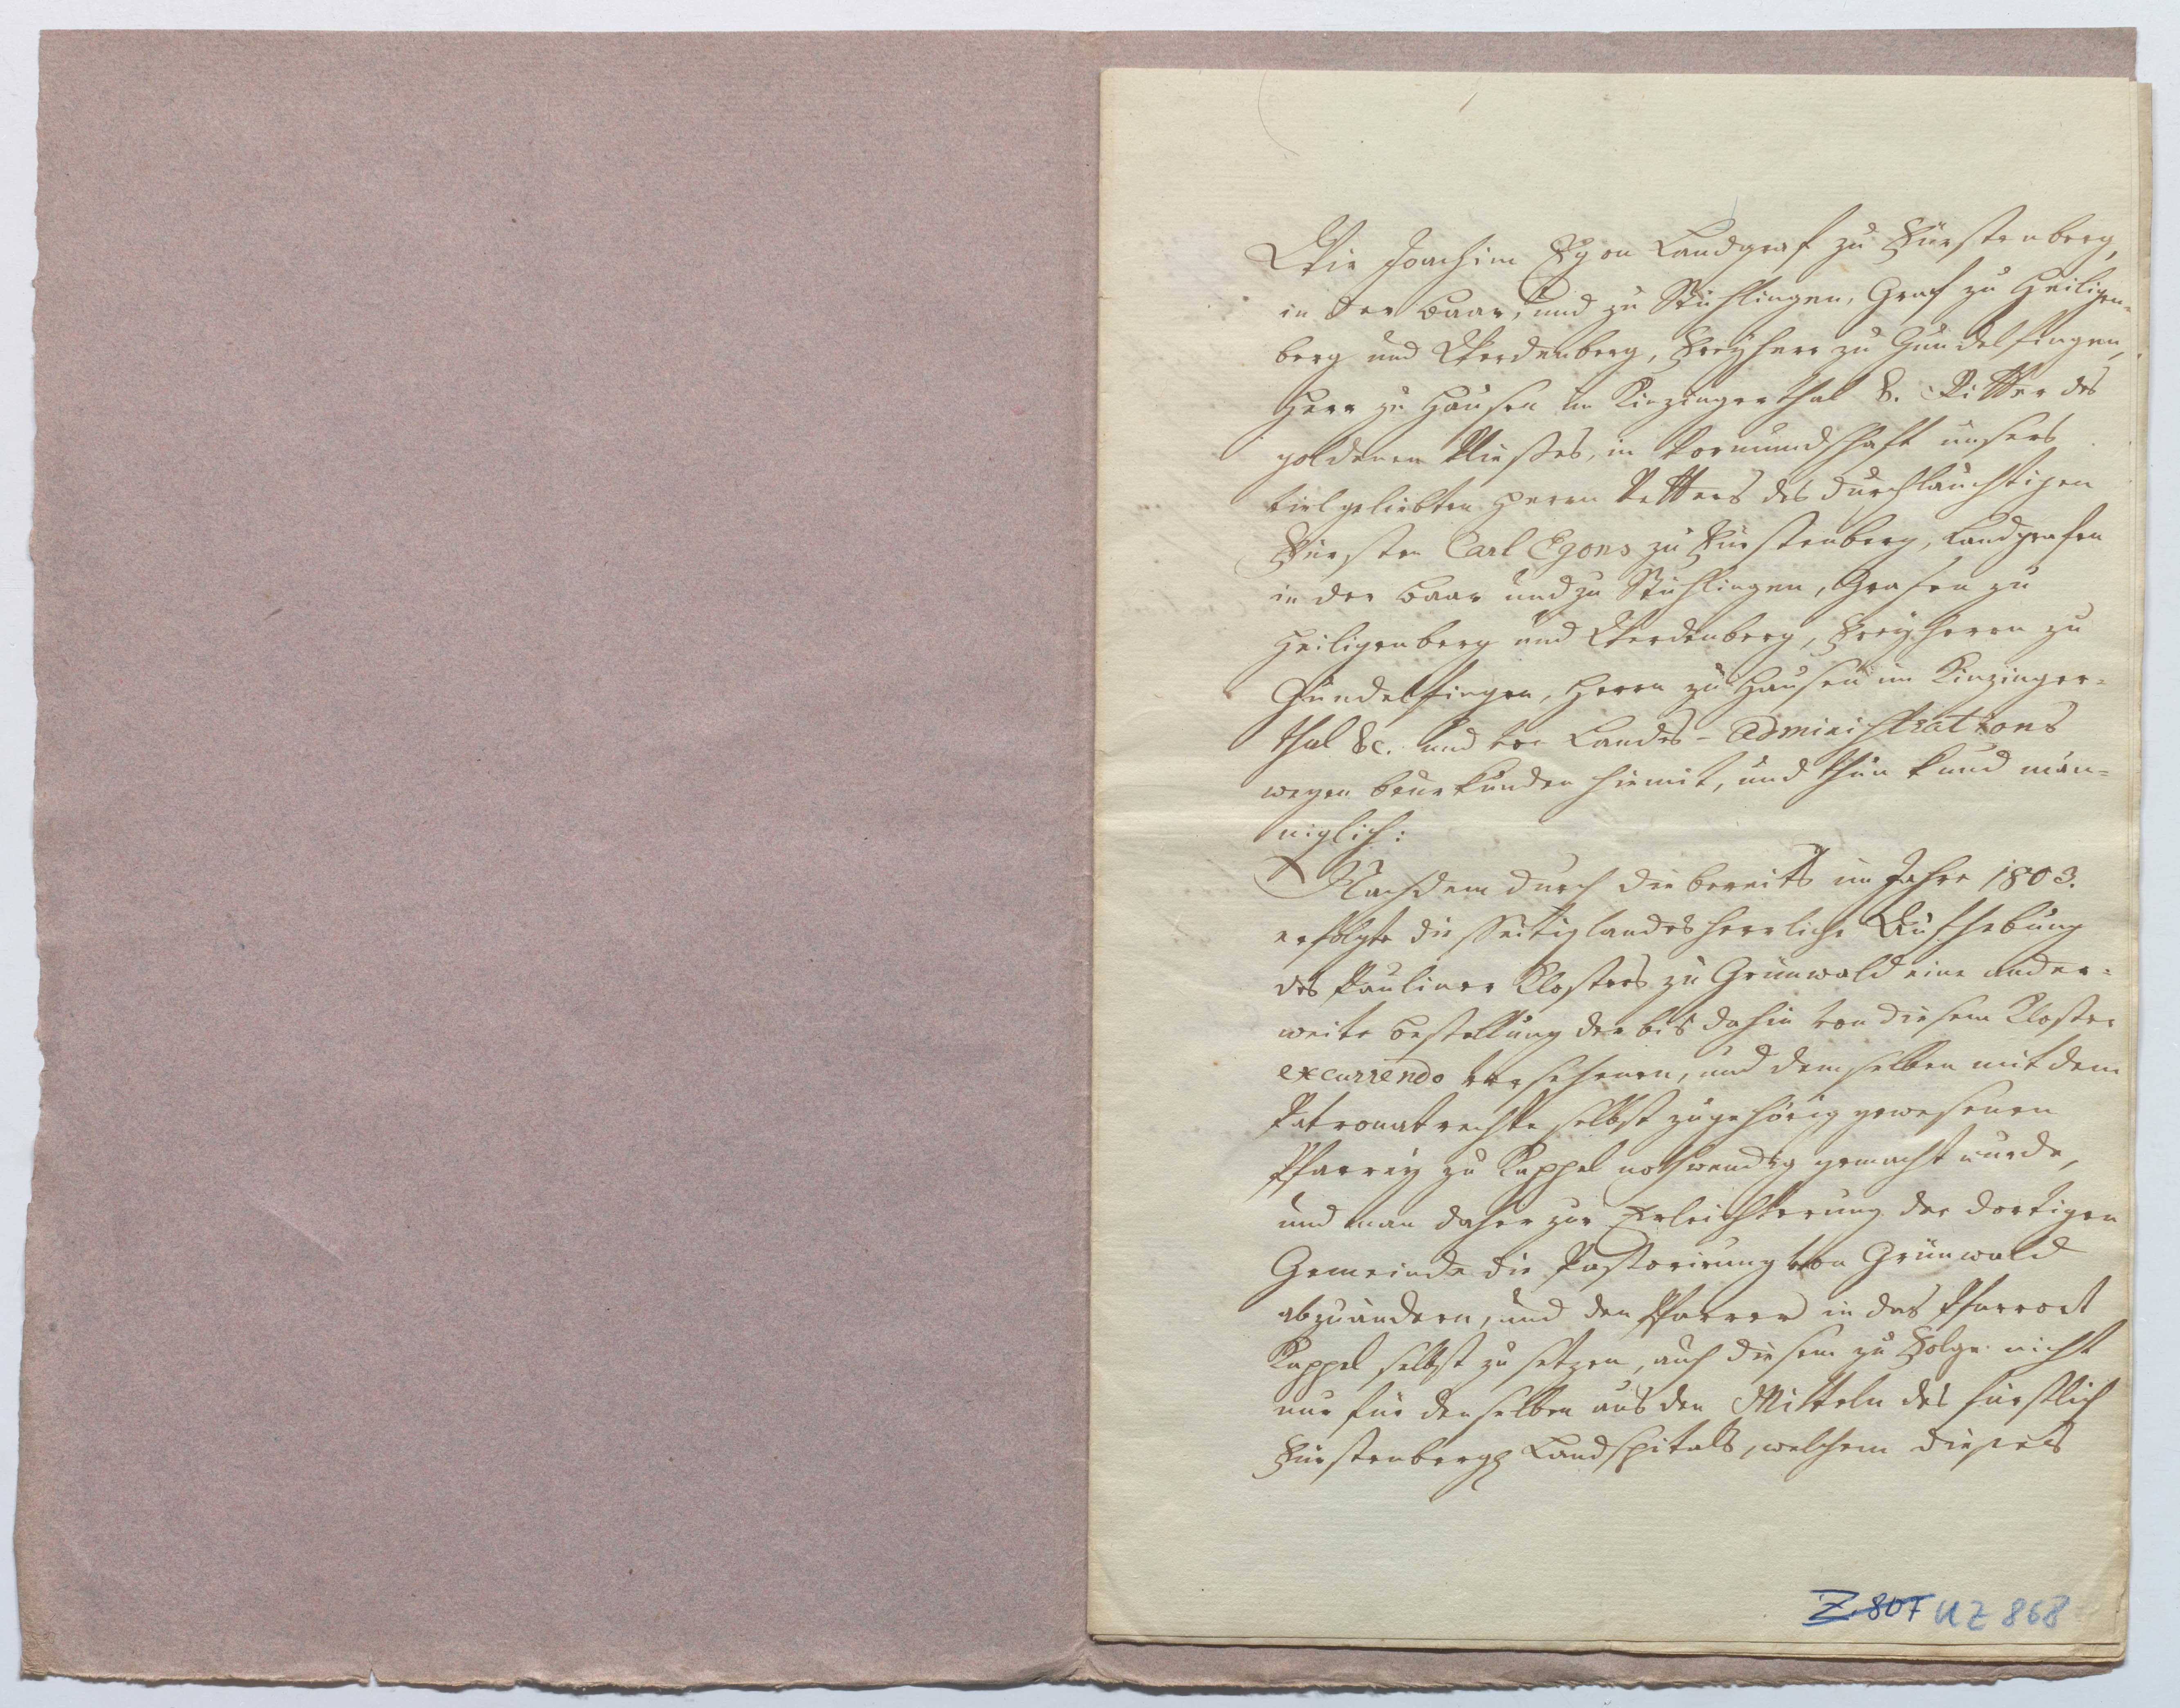 Wir Joachim Egon Landgraf zu Fürstenberg,
in der Baar, und zu Stühlingen, Graf zu Heiligen-
berg und Werdenberg, Freyherr zu Gundelfingen,
Herr zu Hausen im Kinzingerthal &. Ritter des
goldenen Vließes, in Vormundschaft unsers
vielgeliebten Herrn Vetters des durchlauchtigen
Fürsten Carl Egons zu Fürstenberg, Landgrafen
in der Baar und zu Stühlingen, Grafen zu
Heiligenberg und Werdenberg, Freyherrn zu
Gundelfingen, Herrn zu Hausen im Kinzinger-
thal &c. und von Landes-Administrations
wegen beurkunden hiemit, und thun kund män-
niglich:
Nachdem durch die bereits im Jahre 1803.
erfolgte disseitig landesherrliche Aufhebung
des Pauliner Klosters zu Grünwald eine ander-
weite Bestellung der bis dahin von diesem Kloster
excurrendo versehenen, und demselben mit dem
Patronatrechte selbst zugehörig gewesenen
Pfarrey zu Kappel nothwendig gemacht wurde,
und man daher zur Erleichterung der dortigen
Gemeinde die Pastorirung von Grünwald
abzuändern, und den Pfarrer in das Pfarrort
Kappel selbst zu setzen, auch diesem zu Folge nicht
nur für denselben aus den Mitteln des fürstlich
Fürstenberg. Landspitals, welchem dieses
Z 807 UZ 868